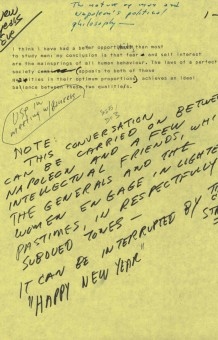 The nature of man and
Napoleon's political
philosophy —
I think I have had a better opportunity than most
to study men; my conclusion is that fear and self interest
are the mainsprings of all human behaviour. The laws of a perfect
society appeals to both of these
qualities in their optimum proportions, achieves an ideal
balance between these two qualities.
USE IN
MEETING W/
NOTE:
THIS CONVERSATION
CAN BE CARRIED ON BETWEEN
NAPOLEON AND A FEW
INTELLECTUAL FRIENDS, WHILE
THE GENERALS AND THE
WOMEN ENGAGE IN LIGHTER
PASTIMES, IN RESPECTFULLY
SUBDUED TONES —
IT CAN BE INTERRUPTED BY THE
"HAPPY NEW YEAR"